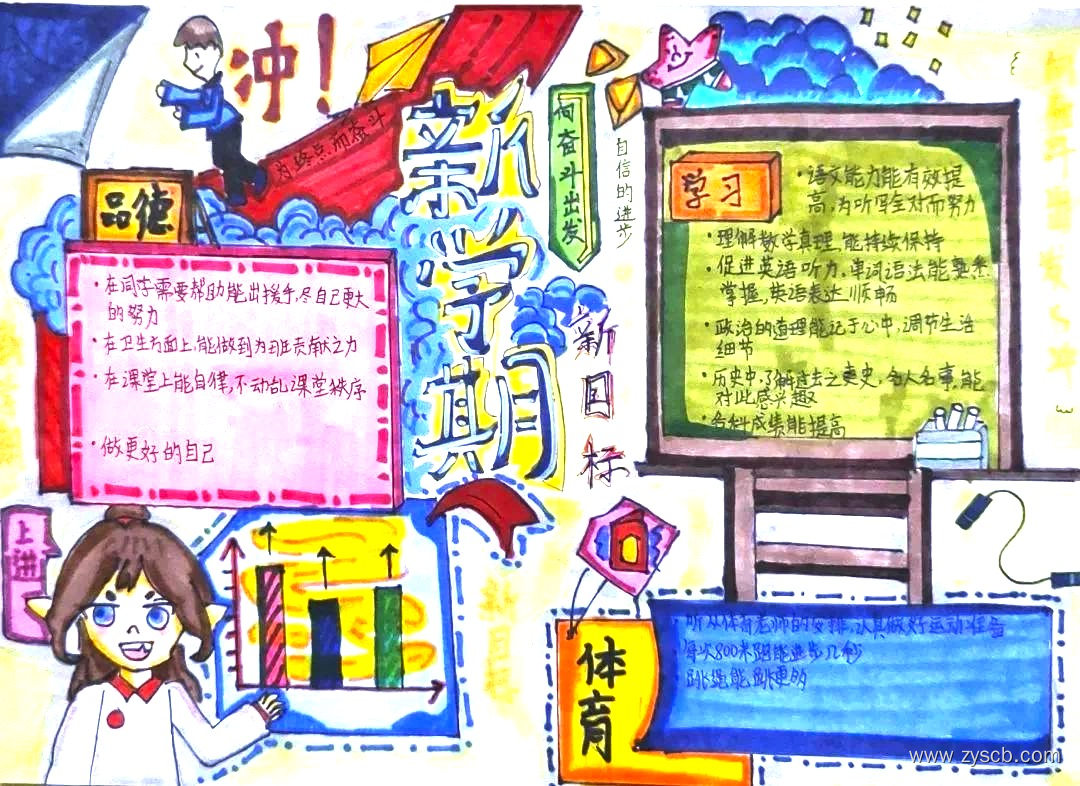 冲！
为终点而奋斗
新学期
新目标
向奋斗出发
自信的进步
品德
•在同学需要帮助能出援手,尽自己更大
的努力
•在卫生方面上,能做到为班贡献之力
•在课堂上能自律,不动乱课堂秩序
•做更好的自己
学习
•语文能力能有效提
高,为听写全对而努力
•理解数学真理,能持续保持
•促进英语听力,单词语法能要悉
掌握,英语表达顺畅
•政治的道理能记于心中,调节生活
细节
•历史中,了解过去之史,名人名事,能
对此感兴趣
•各科成绩能提高
上进
体育
•听从体育老师的安排,认真做好运动准备
•每次800米跑能进步几秒
•跳绳能跳更多
www.zyscb.com